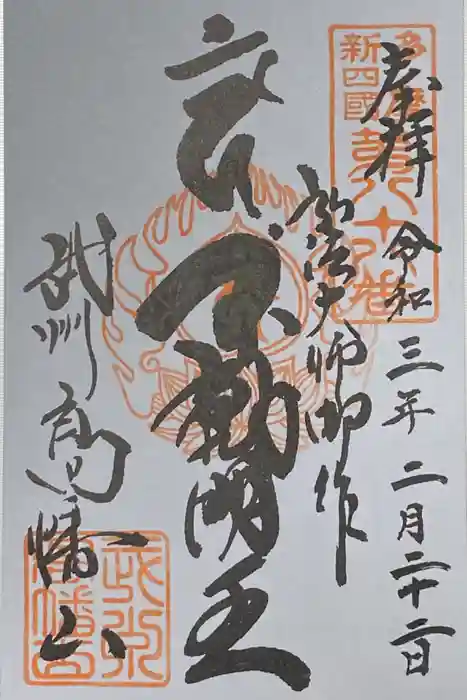 奉拝 令和三年二月二十二日
多摩
新四國
第八十八番
弘法大師御作
不動明王
武州 高幡山